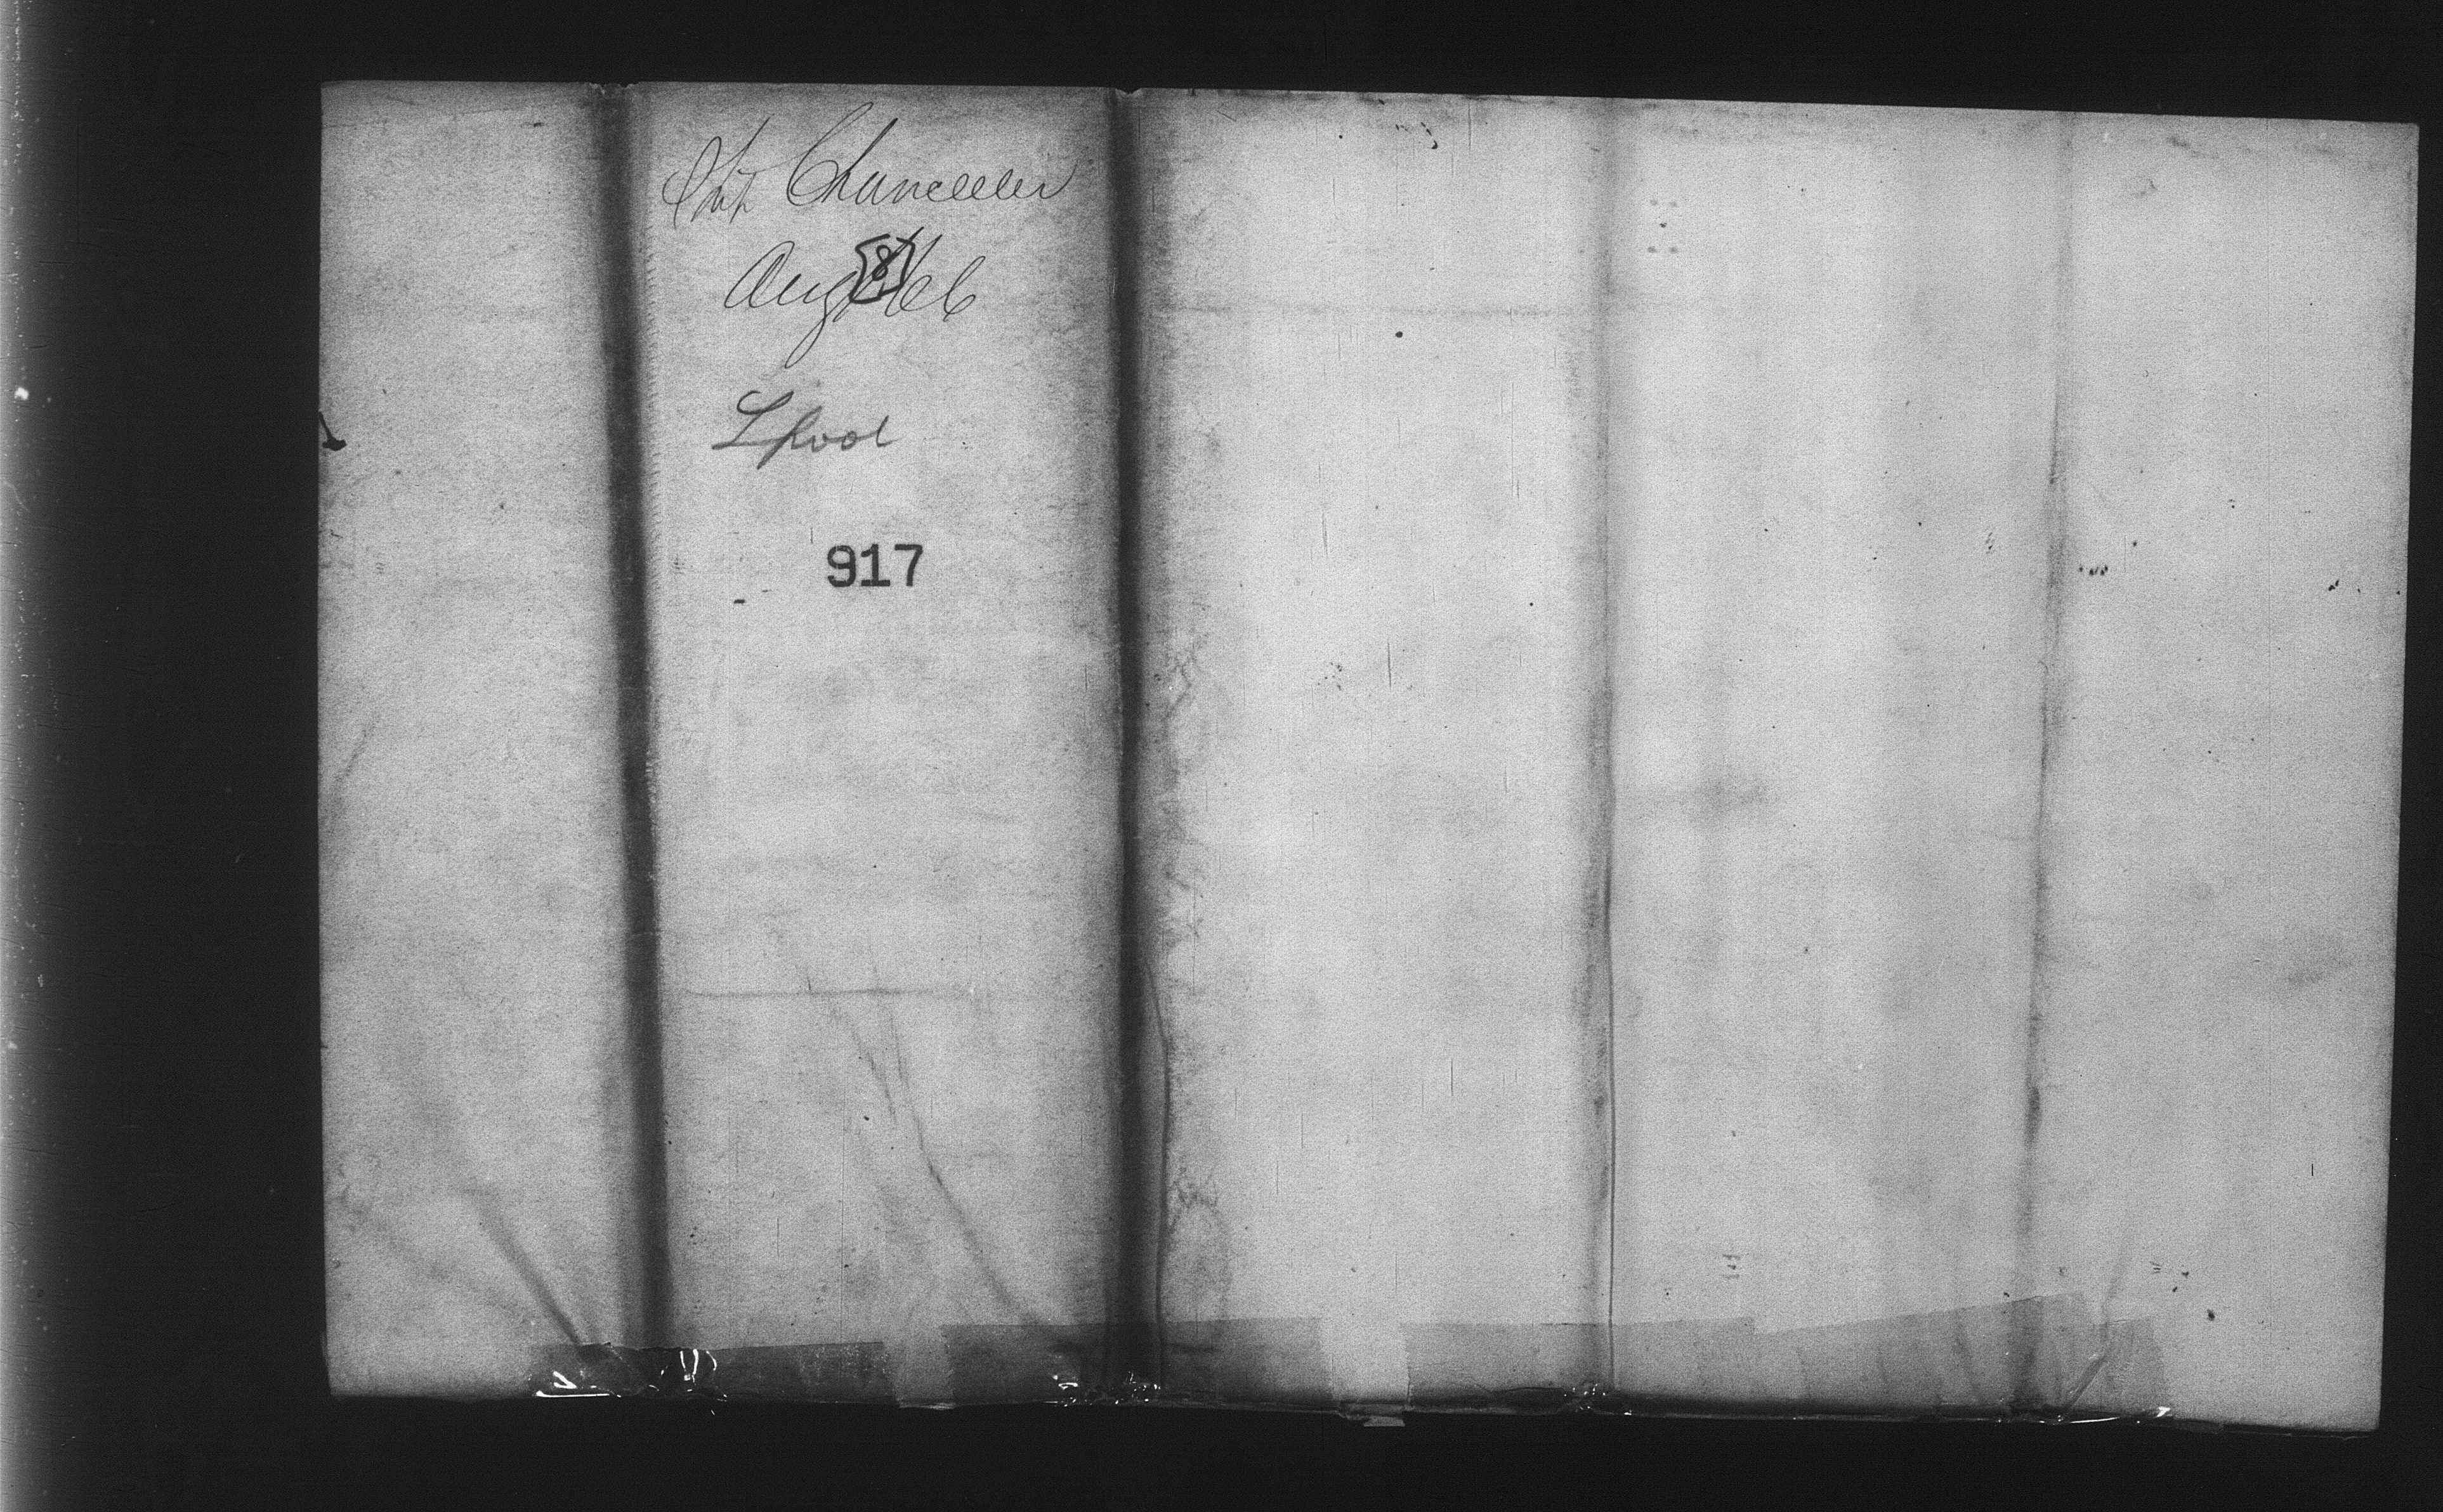 Sht Chanceller
Aug 8/66
Lpool
917